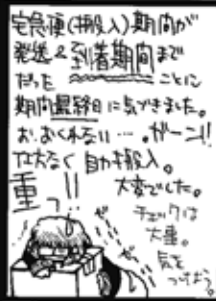 宅急便(搬入)期間が
発送&到着期間まで
だった ことに
期間最終日に気づきました。
お、おくれない…。ガーン!!
仕方なく 自力搬入。
重っ!! 大変でした。
チェックは
大事。
気を
つけよう。